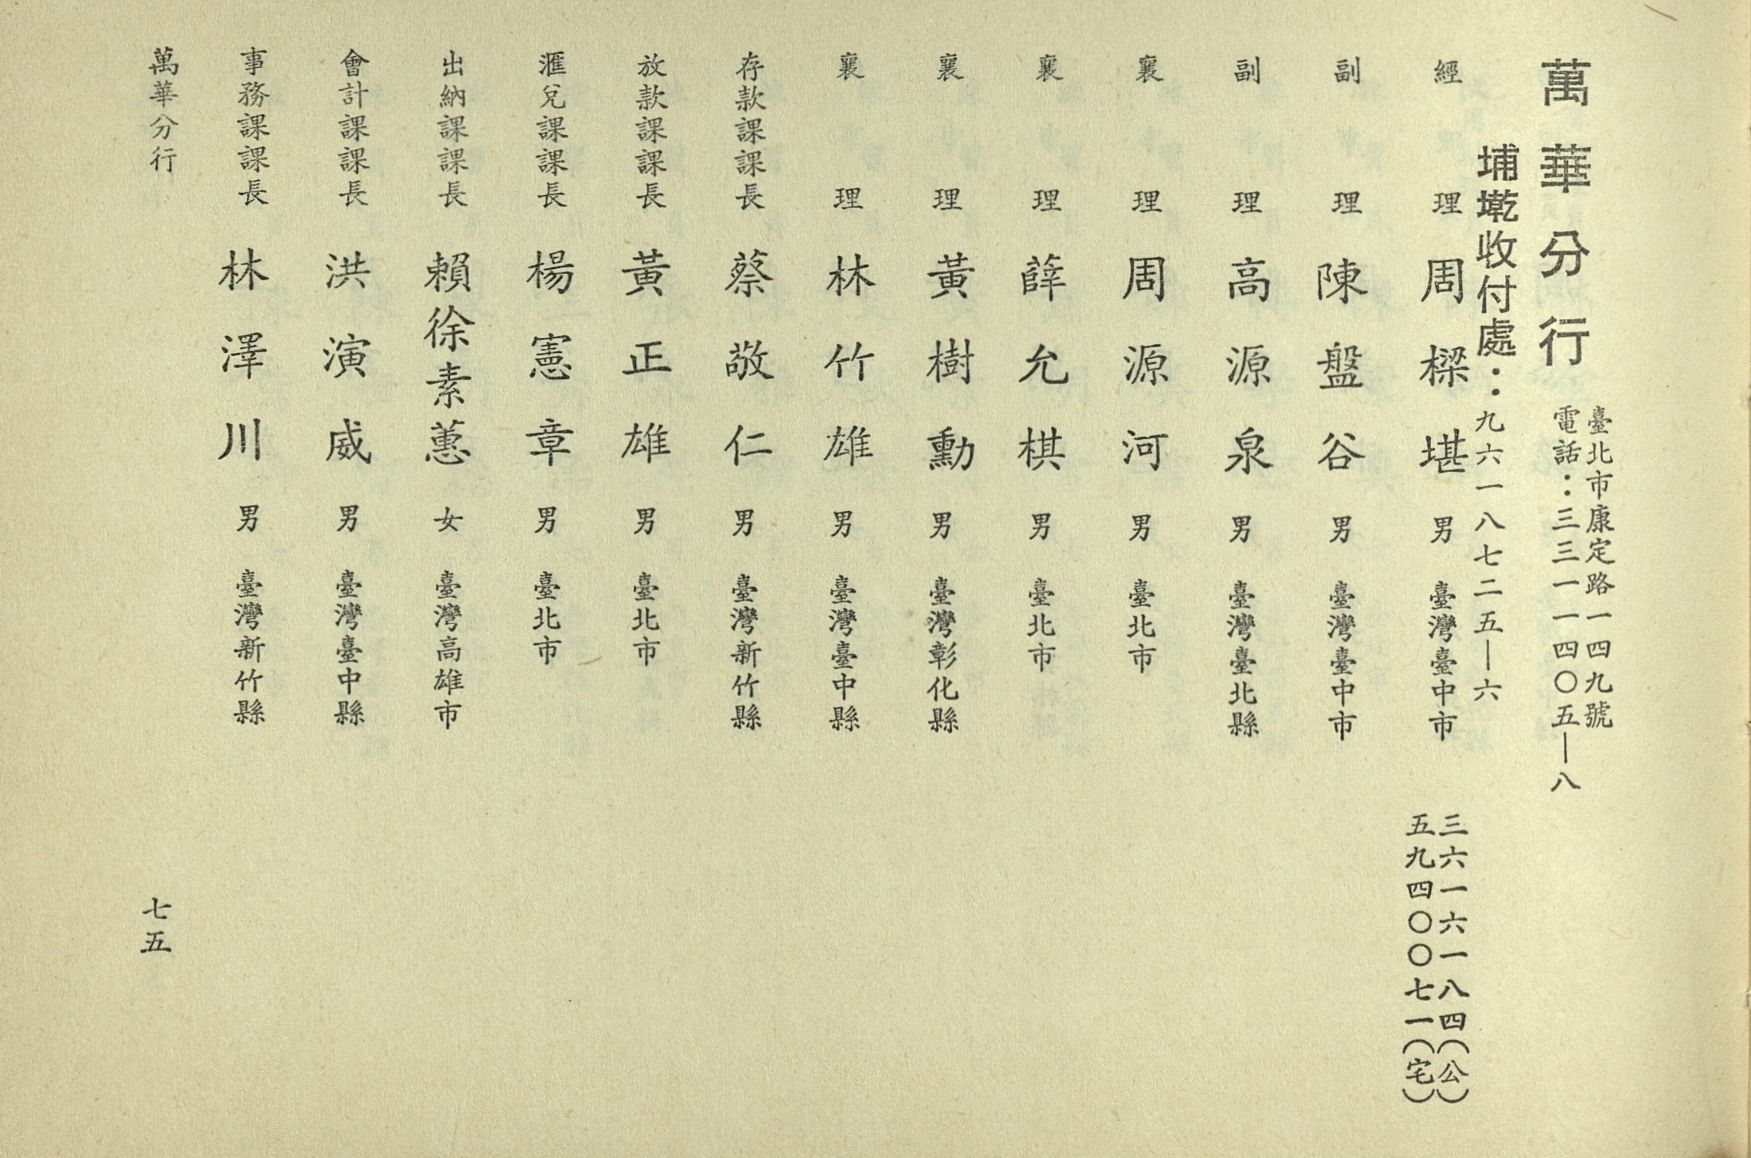 萬華分行
臺北市康定路一四九號
電話：三三一一四〇五—八
埔墘收付處：九六一八七二五—六
經理 周樑堪 男 臺灣臺中市 三六一六一八四（公）
五九四〇〇七一（宅）
副理 陳盤谷 男 臺灣臺中市
副理 高源泉 男 臺灣臺北縣
襄理 周源河 男 臺北市
襄理 薛允棋 男 臺北市
襄理 黃樹勳 男 臺灣彰化縣
襄理 林竹雄 男 臺灣臺中縣
存款課課長 蔡敬仁 男 臺灣新竹縣
放款課課長 黃正雄 男 臺北市
滙兌課課長 楊憲章 男 臺北市
出納課課長 賴徐素蕙 女 臺灣高雄市
會計課課長 洪演威 男 臺灣臺中縣
事務課課長 林澤川 男 臺灣新竹縣
萬華分行
七五